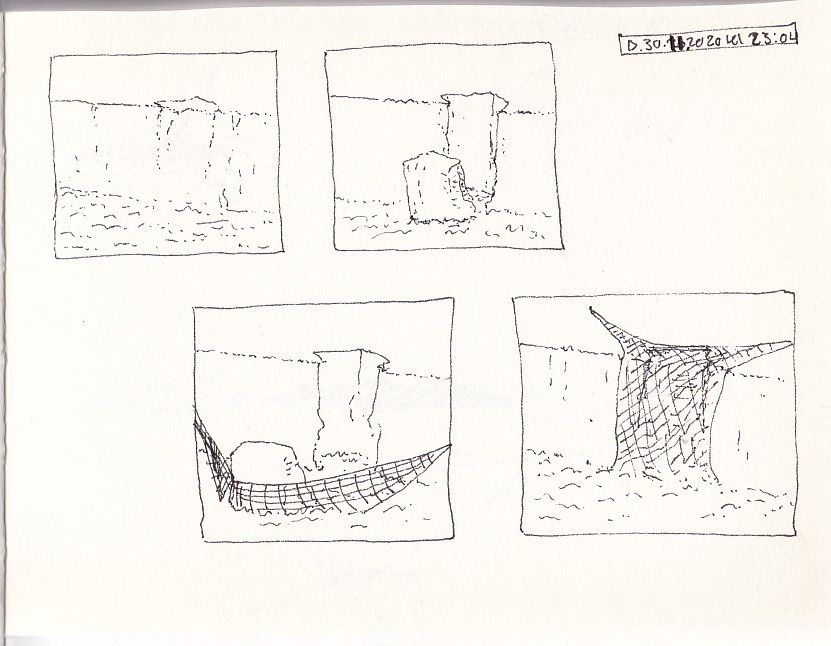 D.30.11.2020 kl 23:04